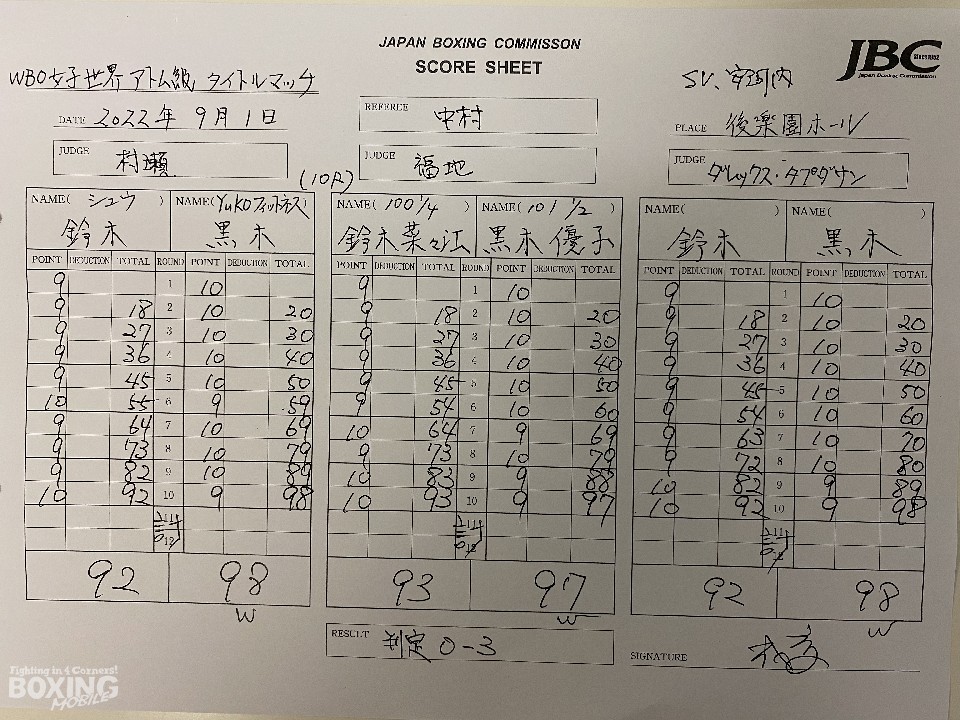 JAPAN BOXING COMMISSON
SCORE SHEET
JBC
Japan Boxing Commission
WBO女子世界アトム級タイトルマッチ
SV、安河内
DATE 2022年9月1日
REFEREE 中村
PLACE 後楽園ホール
JUDGE 村瀬
(10R)
JUDGE 福地
JUDGE ダレックス・タプダサン
NAME(シュウ) NAME(YuKOフィットネス)
鈴木 黒木
POINT DEDUCTION TOTAL ROUND POINT DEDUCTION TOTAL
9 1 10
9 18 2 10 20
9 27 3 10 30
9 36 4 10 40
9 45 5 10 50
10 55 6 9 59
9 64 7 10 69
9 73 8 10 79
9 82 9 10 89
10 92 10 9 98
計
92 98
W
NAME(100 1/4) NAME(101 1/2)
鈴木菜々江 黒木優子
POINT DEDUCTION TOTAL ROUND POINT DEDUCTION TOTAL
9 1 10
9 18 2 10 20
9 27 3 10 30
9 36 4 10 40
9 45 5 10 50
9 54 6 10 60
10 64 7 9 69
9 73 8 10 79
10 83 9 9 88
10 93 10 9 97
計
93 97
W
NAME( ) NAME( )
鈴木 黒木
POINT DEDUCTION TOTAL ROUND POINT DEDUCTION TOTAL
9 1 10
9 18 2 10 20
9 27 3 10 30
9 36 4 10 40
9 45 5 10 50
9 54 6 10 60
9 63 7 10 70
9 72 8 10 80
10 82 9 9 89
10 92 10 9 98
計
92 98
W
RESULT 判定 0-3
SIGNATURE
Fighting in 4 Corners!
BOXING
MOBILE